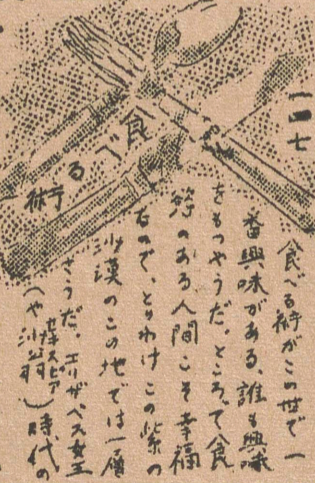 一四七
食べる術
食べる術がこの世で一
番興味がある、誰も興味
をもつやうだ。ところで食
慾のある人間こそ幸福
なもので、とりわけこの紫の
沙漠のこの地では一層
さうだ。エリザベス女王
セキスピア
(や沙翁)時代の